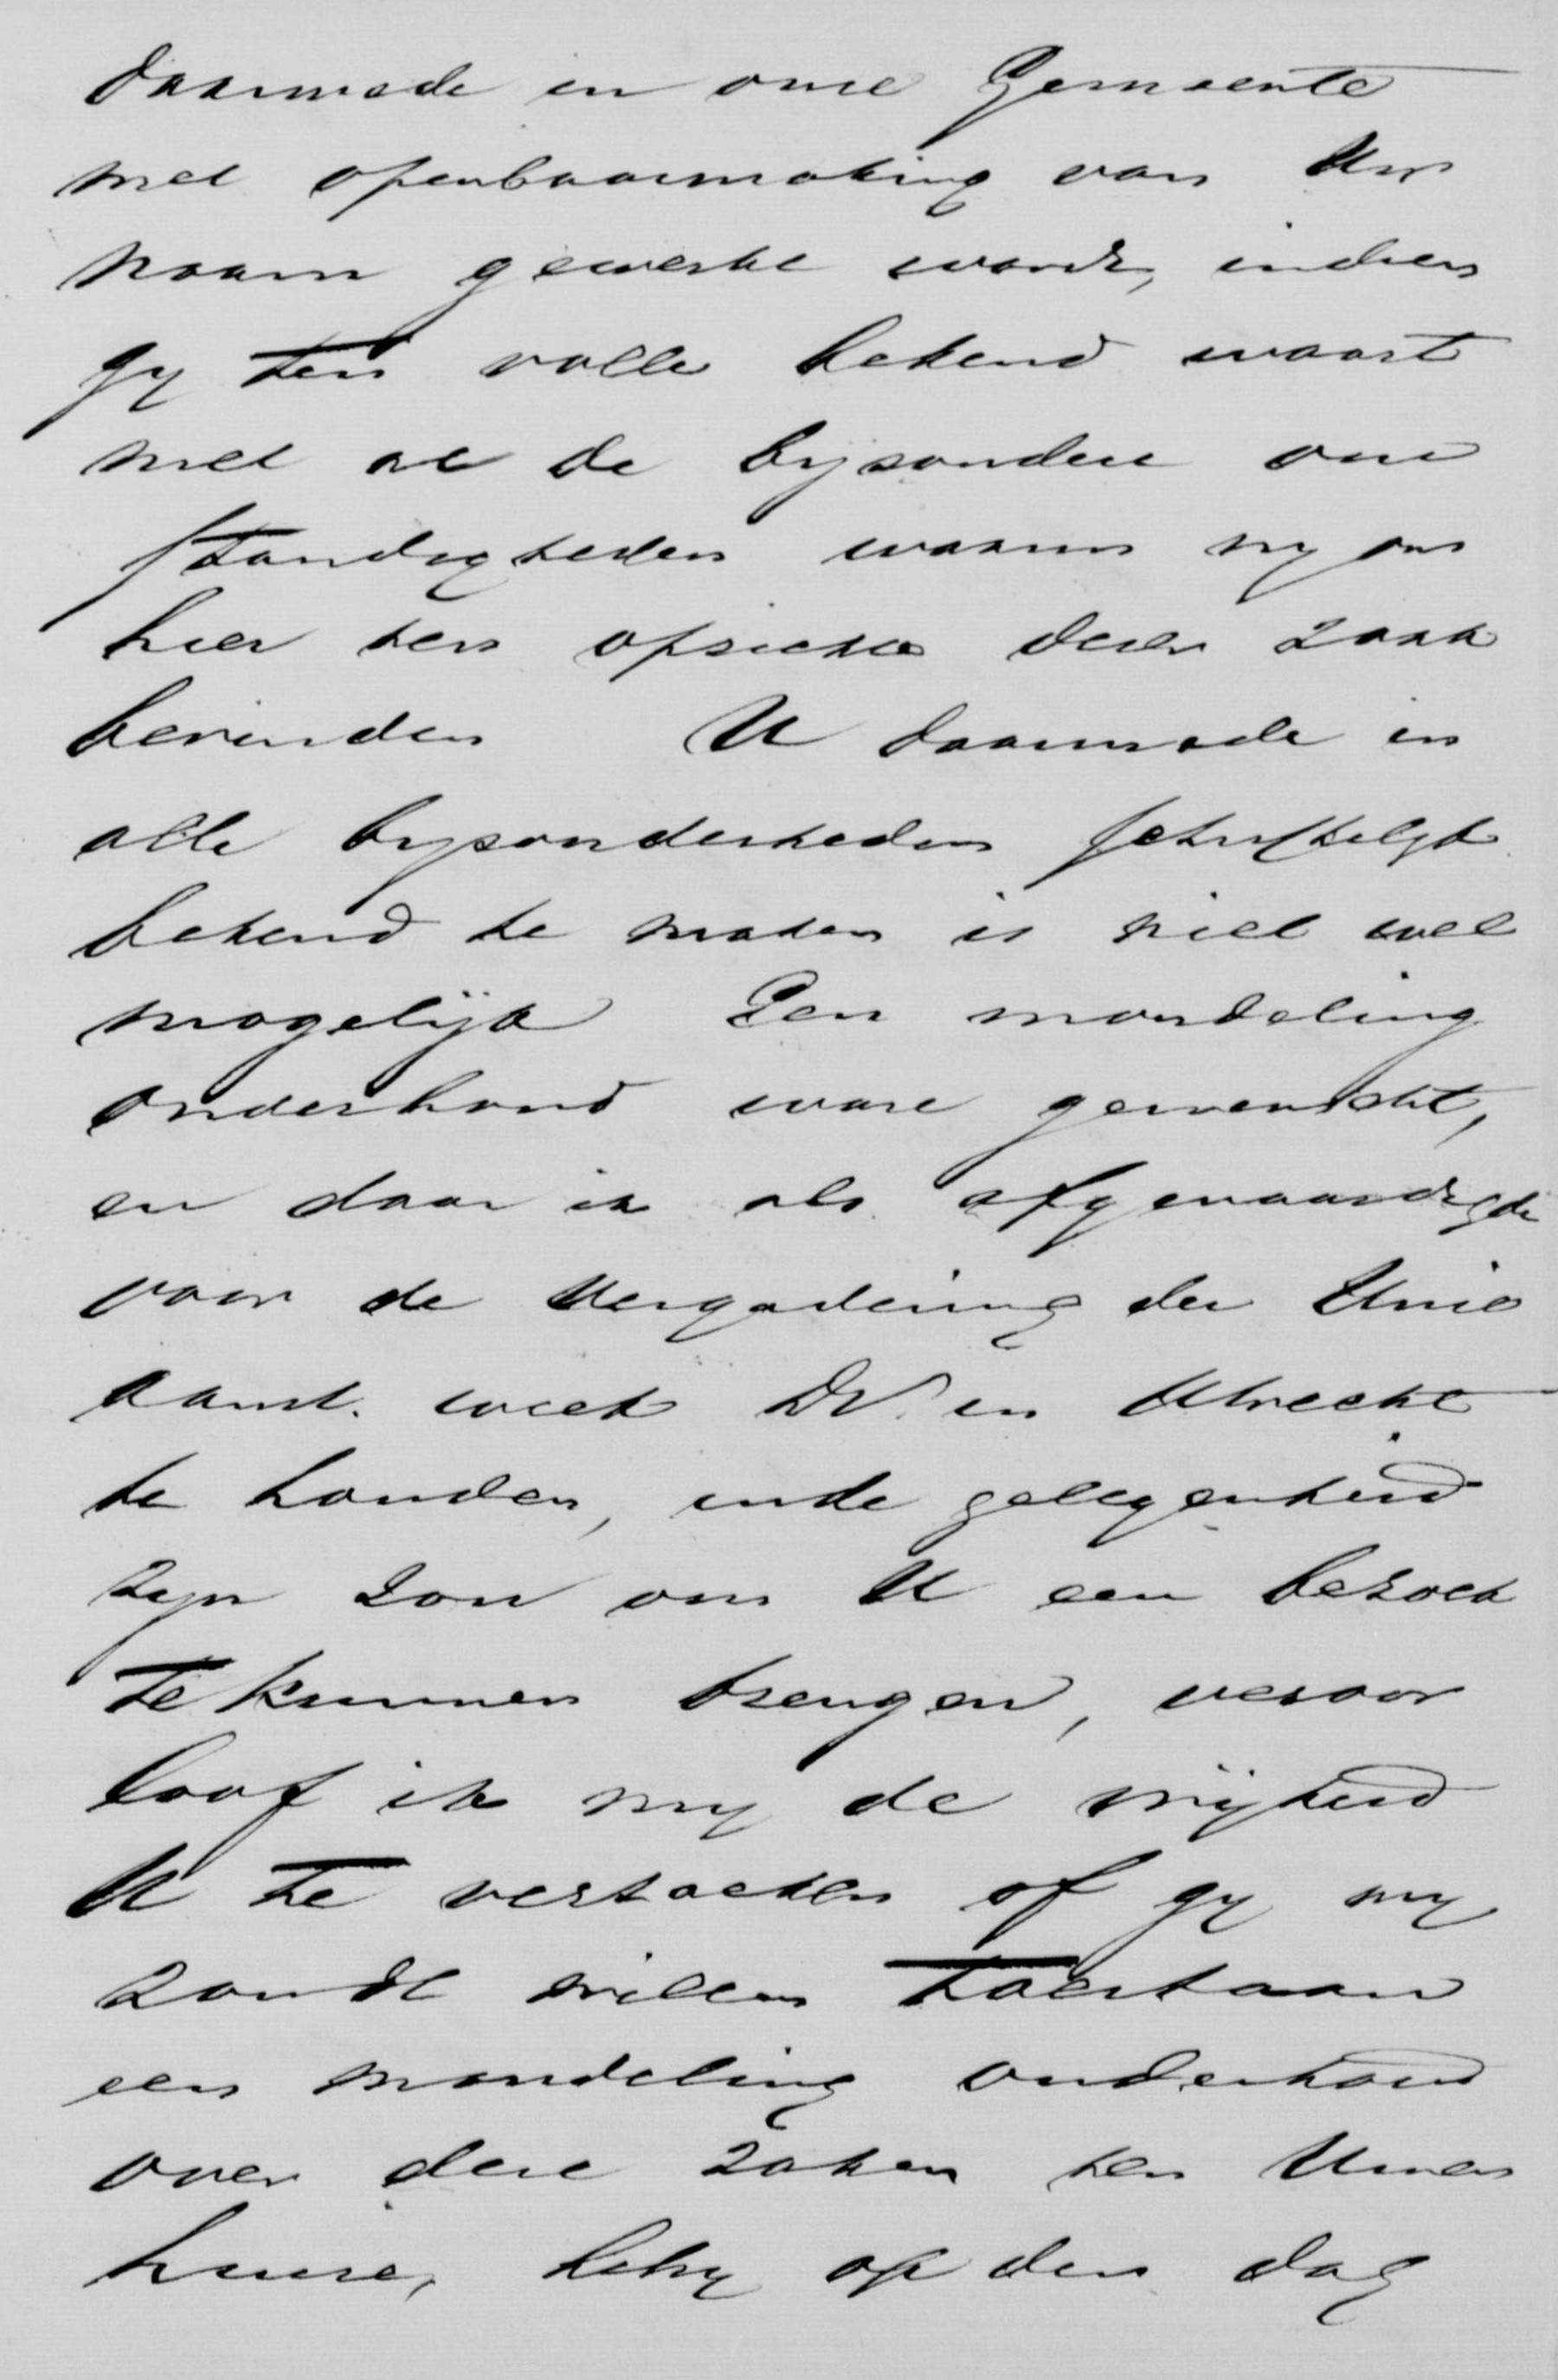 daarmede in onze Gemeente
met openbaarmaking van Uw
naam gewerkt wordt, indien
gy ten volle bekend waart
met al de byzondere om
standigheden waarin wy ons
hier ten opzichte dezer zaak
bevinden U daarmede in
alle byzonderheden schriftelyk
bekend te maken is niet wel
mogelijk Een mondeling
onderhoud ware gewenscht,
en daar ik als afgevaardigde
voor de Vergadering der Unie
aanst. week DV. in Utrecht
te houden, in de gelegenheid
zyn zou om U een bezoek
te kunnen brengen, veroor
loof ik my de vrijheid
U te verzoeken of gy my
zoudt willen toestaan
een mondeling onderhoud
over deze zaken ten Uwen
huize, hetzy op den dag